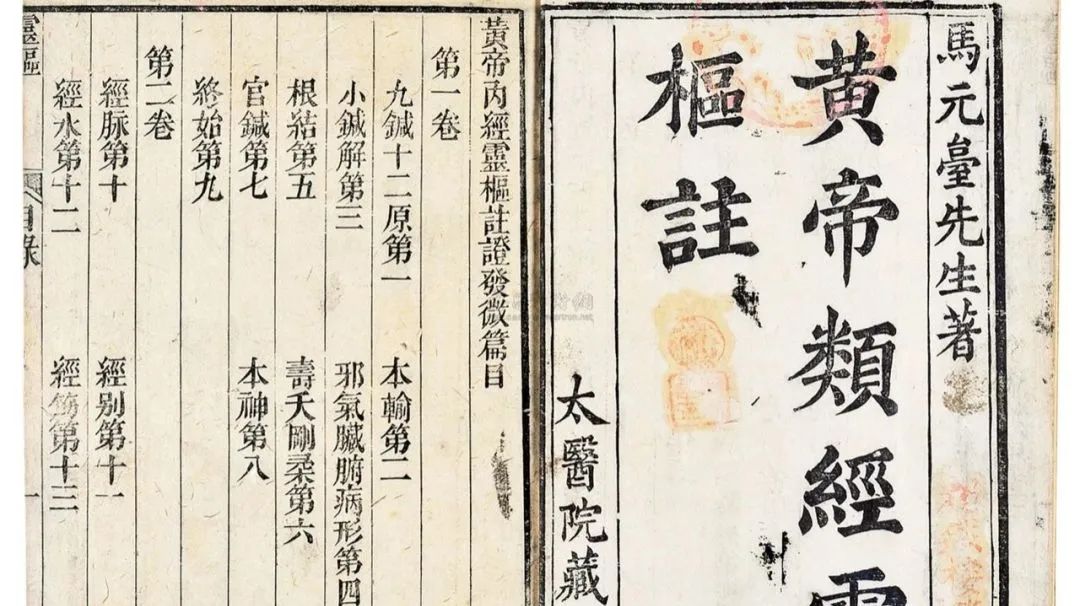 馬元臺先生著
黃帝類經靈
樞註
太醫院藏
黃帝內經靈樞註證發微篇目
第一卷
九鍼十二原第一
本輸第二
小鍼解第三
邪氣臟腑病形第四
根結第五
壽夭剛柔第六
官鍼第七
本神第八
終始第九
第二卷
經脉第十
經别第十一
經水第十二
經筋第十三
靈樞
目錄
一